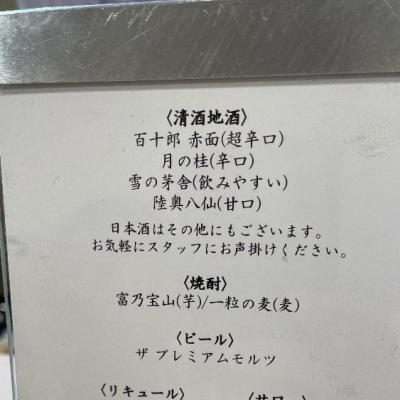 〈清酒地酒〉
百十郎 赤面(超辛口)
月の桂(辛口)
雪の茅舎(飲みやすい)
陸奥八仙(甘口)
日本酒はその他にもございます。
お気軽にスタッフにお声掛けください。
〈焼酎〉
富乃宝山(芋)/一粒の麦(麦)
〈ビール〉
ザ プレミアムモルツ
〈リキュール〉
〈サワー〉